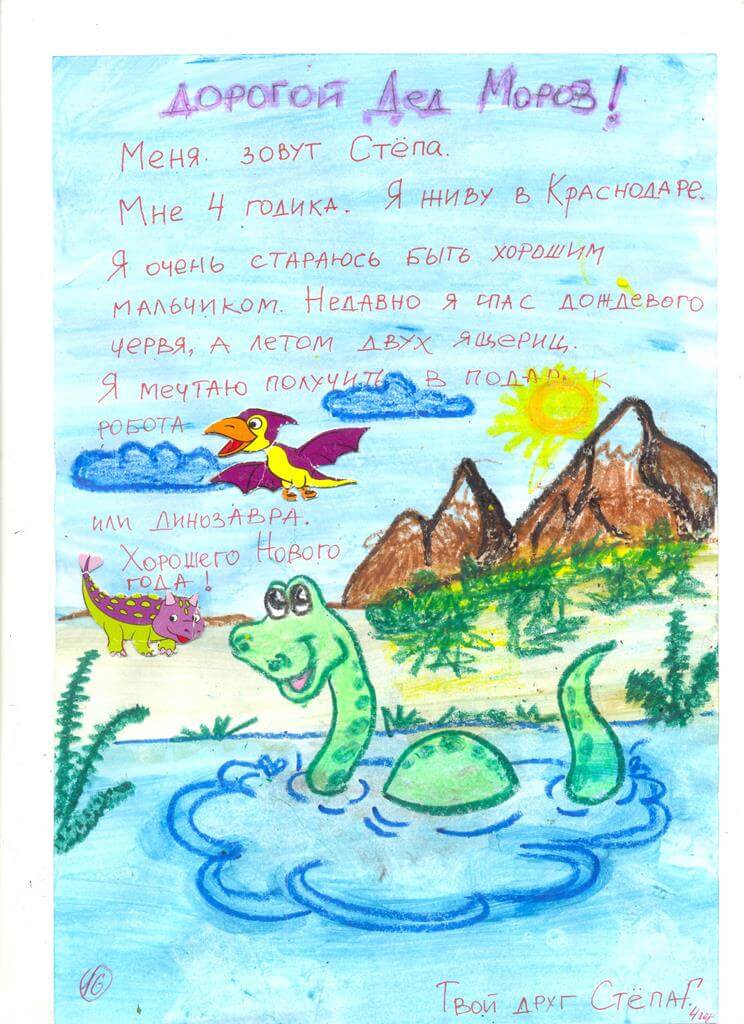 ДОРОГОЙ ДЕД МОРОЗ!
Меня зовут Стёпа.
Мне 4 годика. Я живу в Краснодаре.
Я очень стараюсь быть хорошим
мальчиком. Недавно я спас дождевого
червя, а летом двух ящериц.
Я мечтаю получить в подарок
робота
или динозавра.
Хорошего Нового
года!
16
Твой друг Стёпа Г.
4 г.